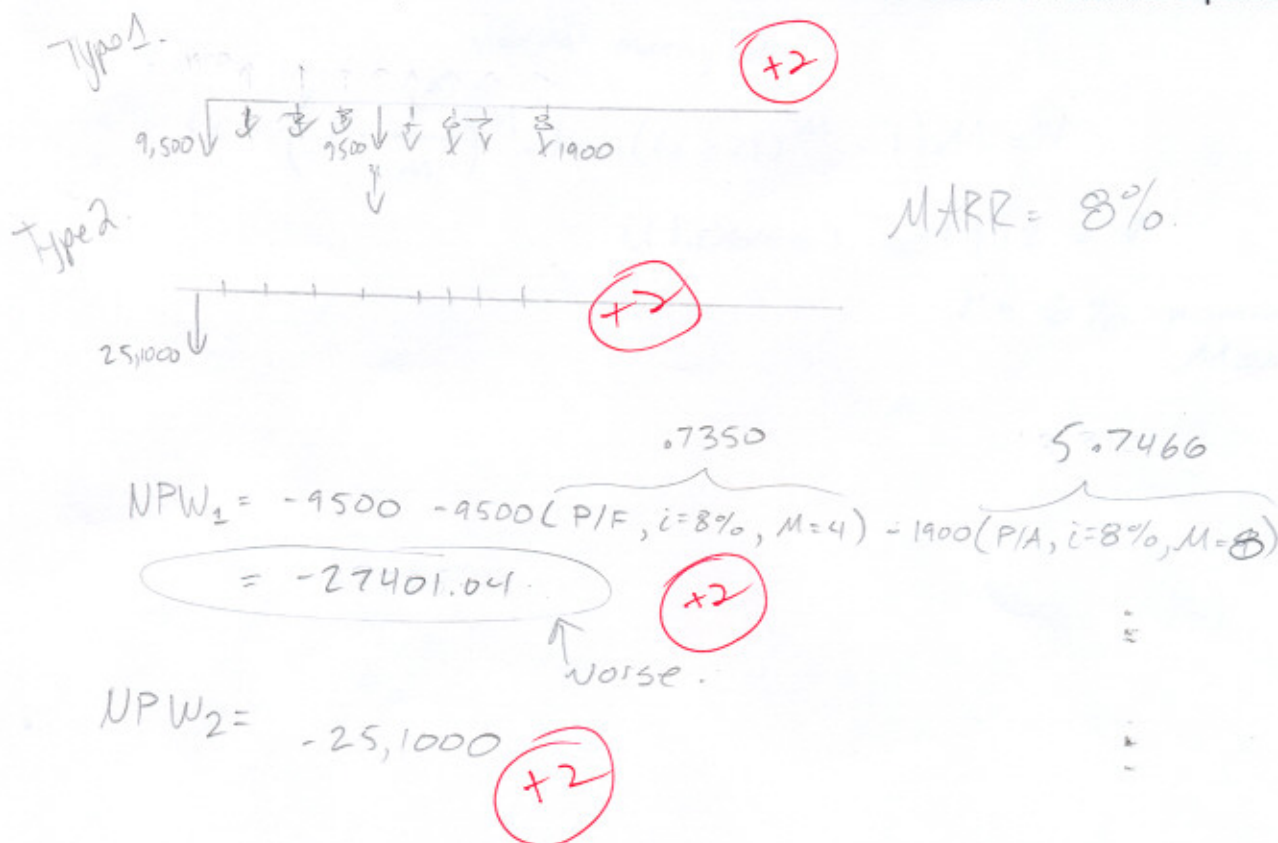 Type 1.
+2
9,500 1 2 3 9500 5 6 7 8 1900
Type 2.
MARR = 8%.
+2
25,1000
.7350 5.7466
NPW1 = -9500 -9500(P/F, i=8%, M=4) - 1900(P/A, i=8%, M=8)
= -27401.04.
+2
worse.
NPW2 =
-25,1000
+2